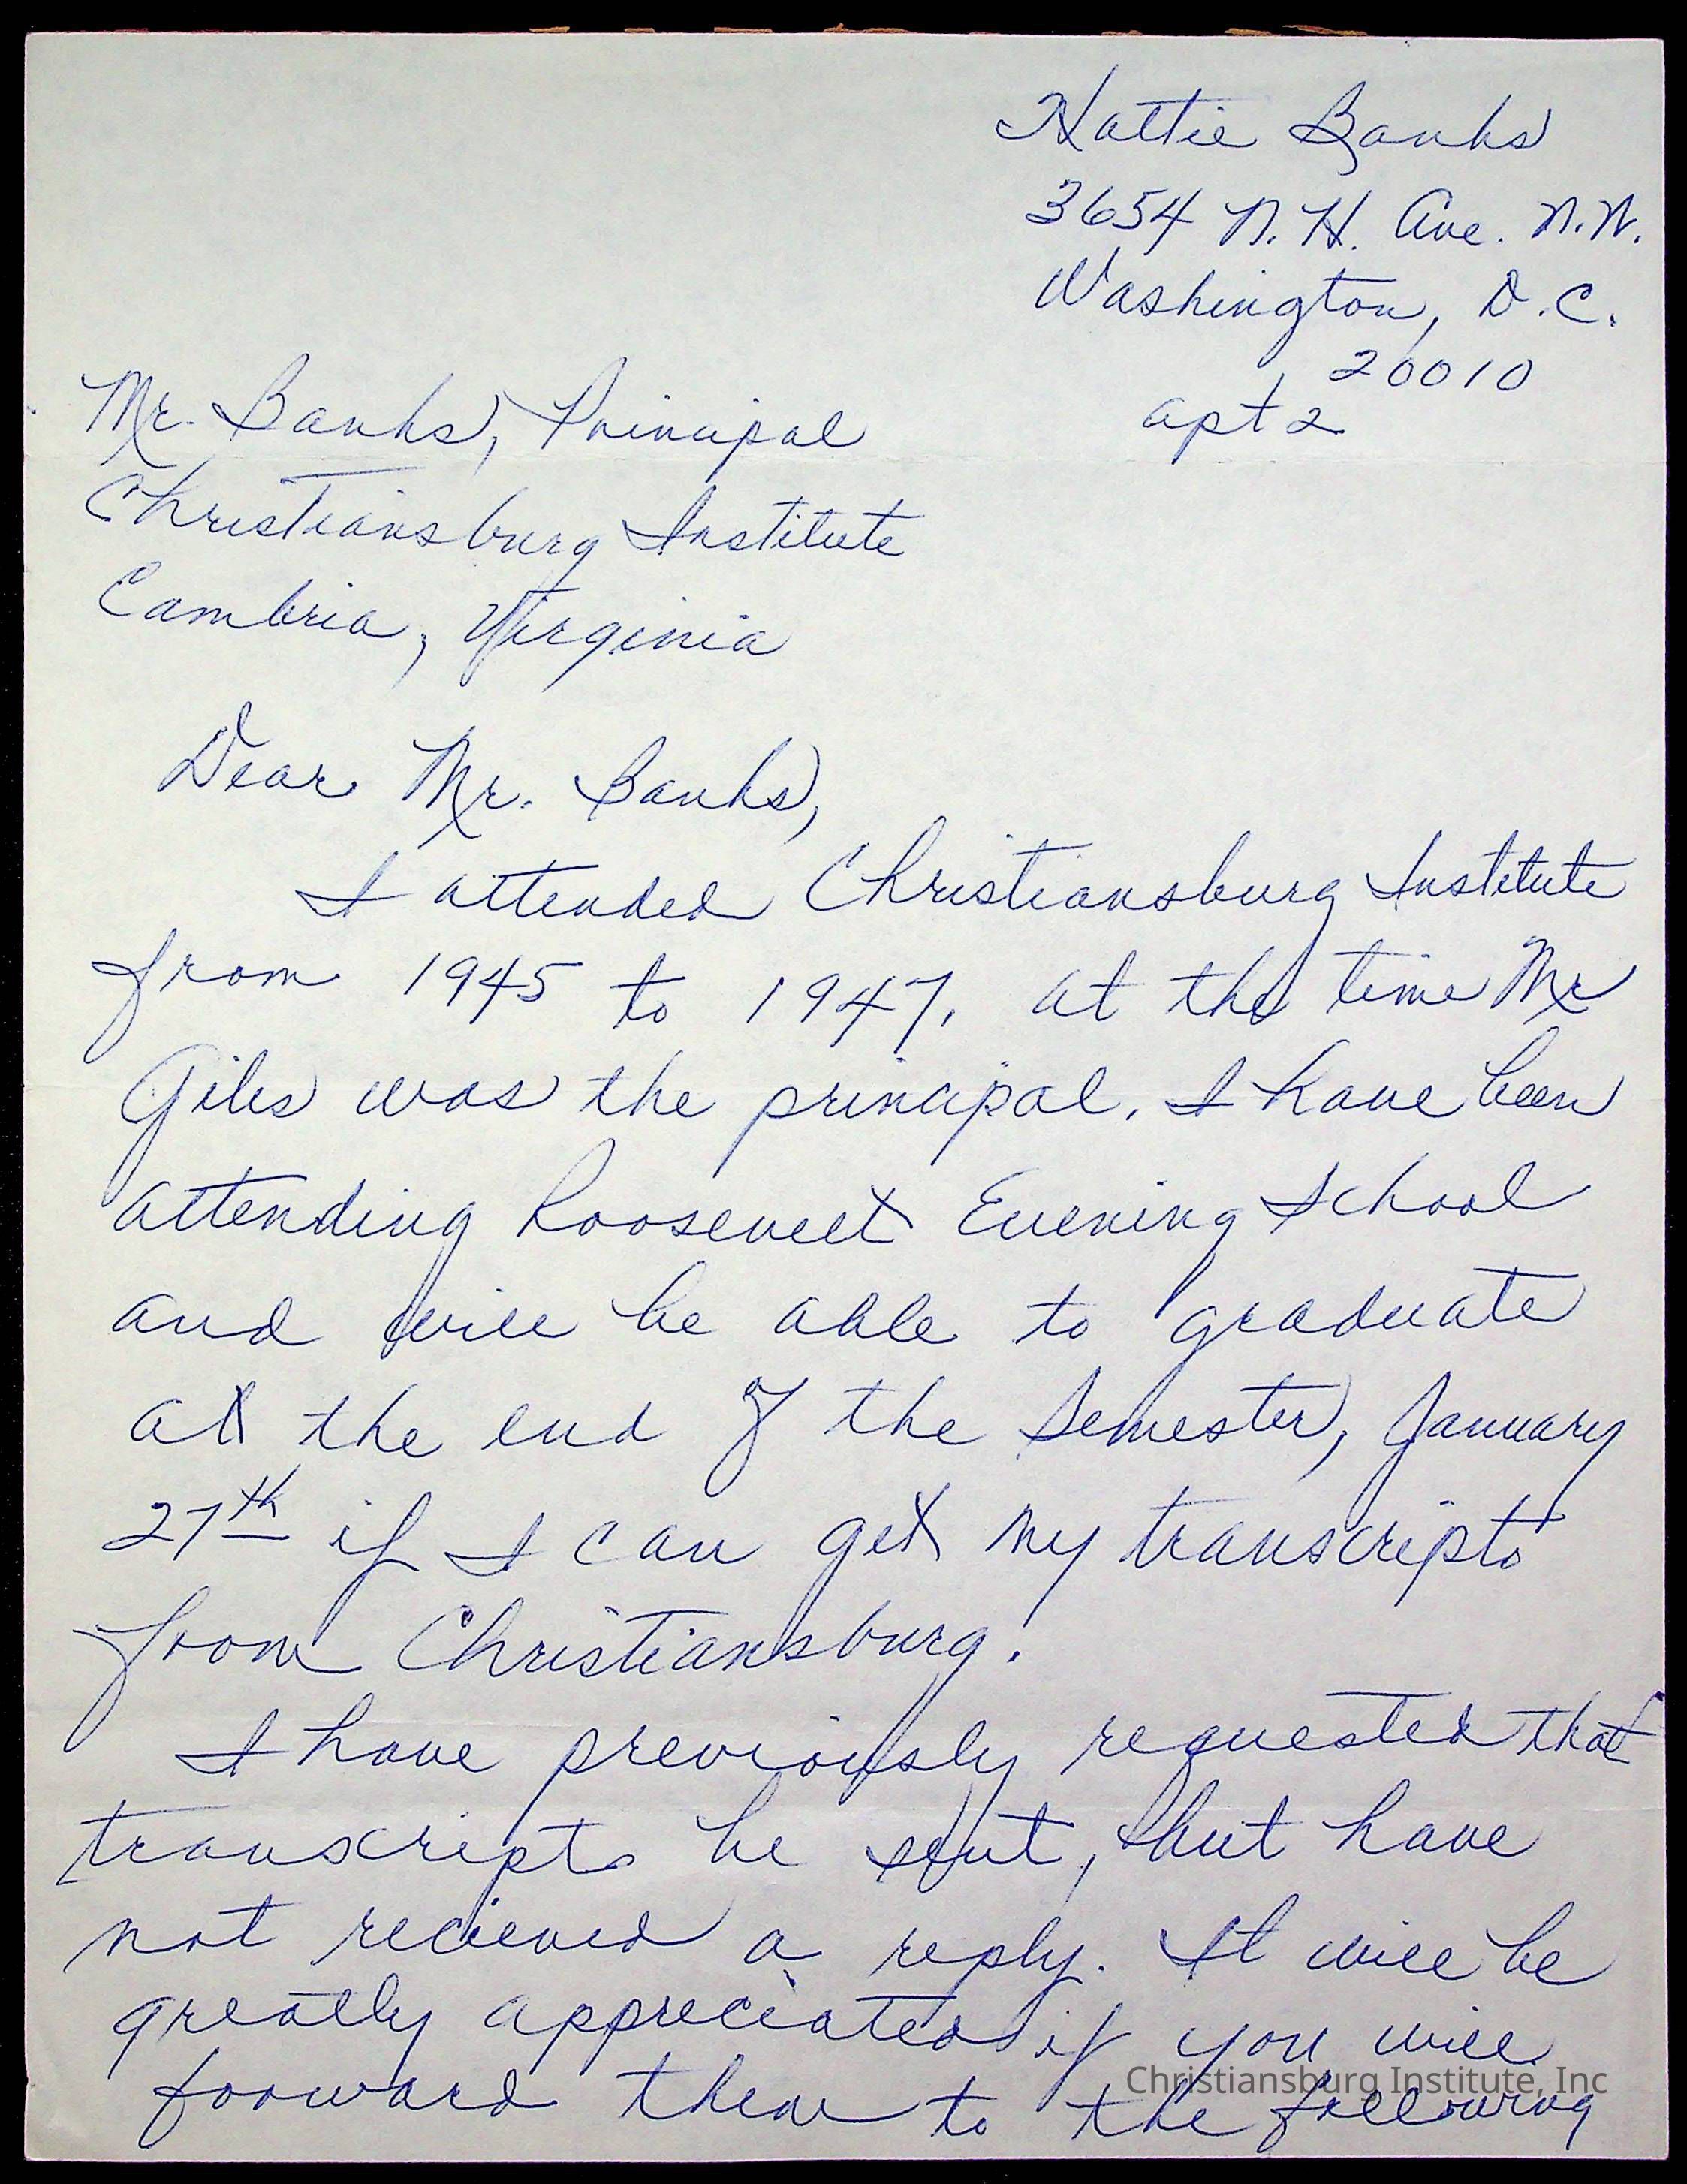 Hattie Banks
3654 N. H. Ave. N.W.
Washington, D.C.
20010
apt 2
Mr. Banks, Principal
Christiansburg Institute
Cambria, Virginia
Dear Mr. Banks,
I attended Christiansburg Institute
from 1945 to 1947, at the time Mr
Giles was the principal. I have been
attending Roosevelt Evening School
and will be able to graduate
at the end of the semester, January
27th if I can get my transcripts
from Christiansburg.
I have previously requested that
transcripts be sent, but have
not recieved a reply. It will be
greatly appreciated if you will
forward them to the following
Christiansburg Institute, Inc